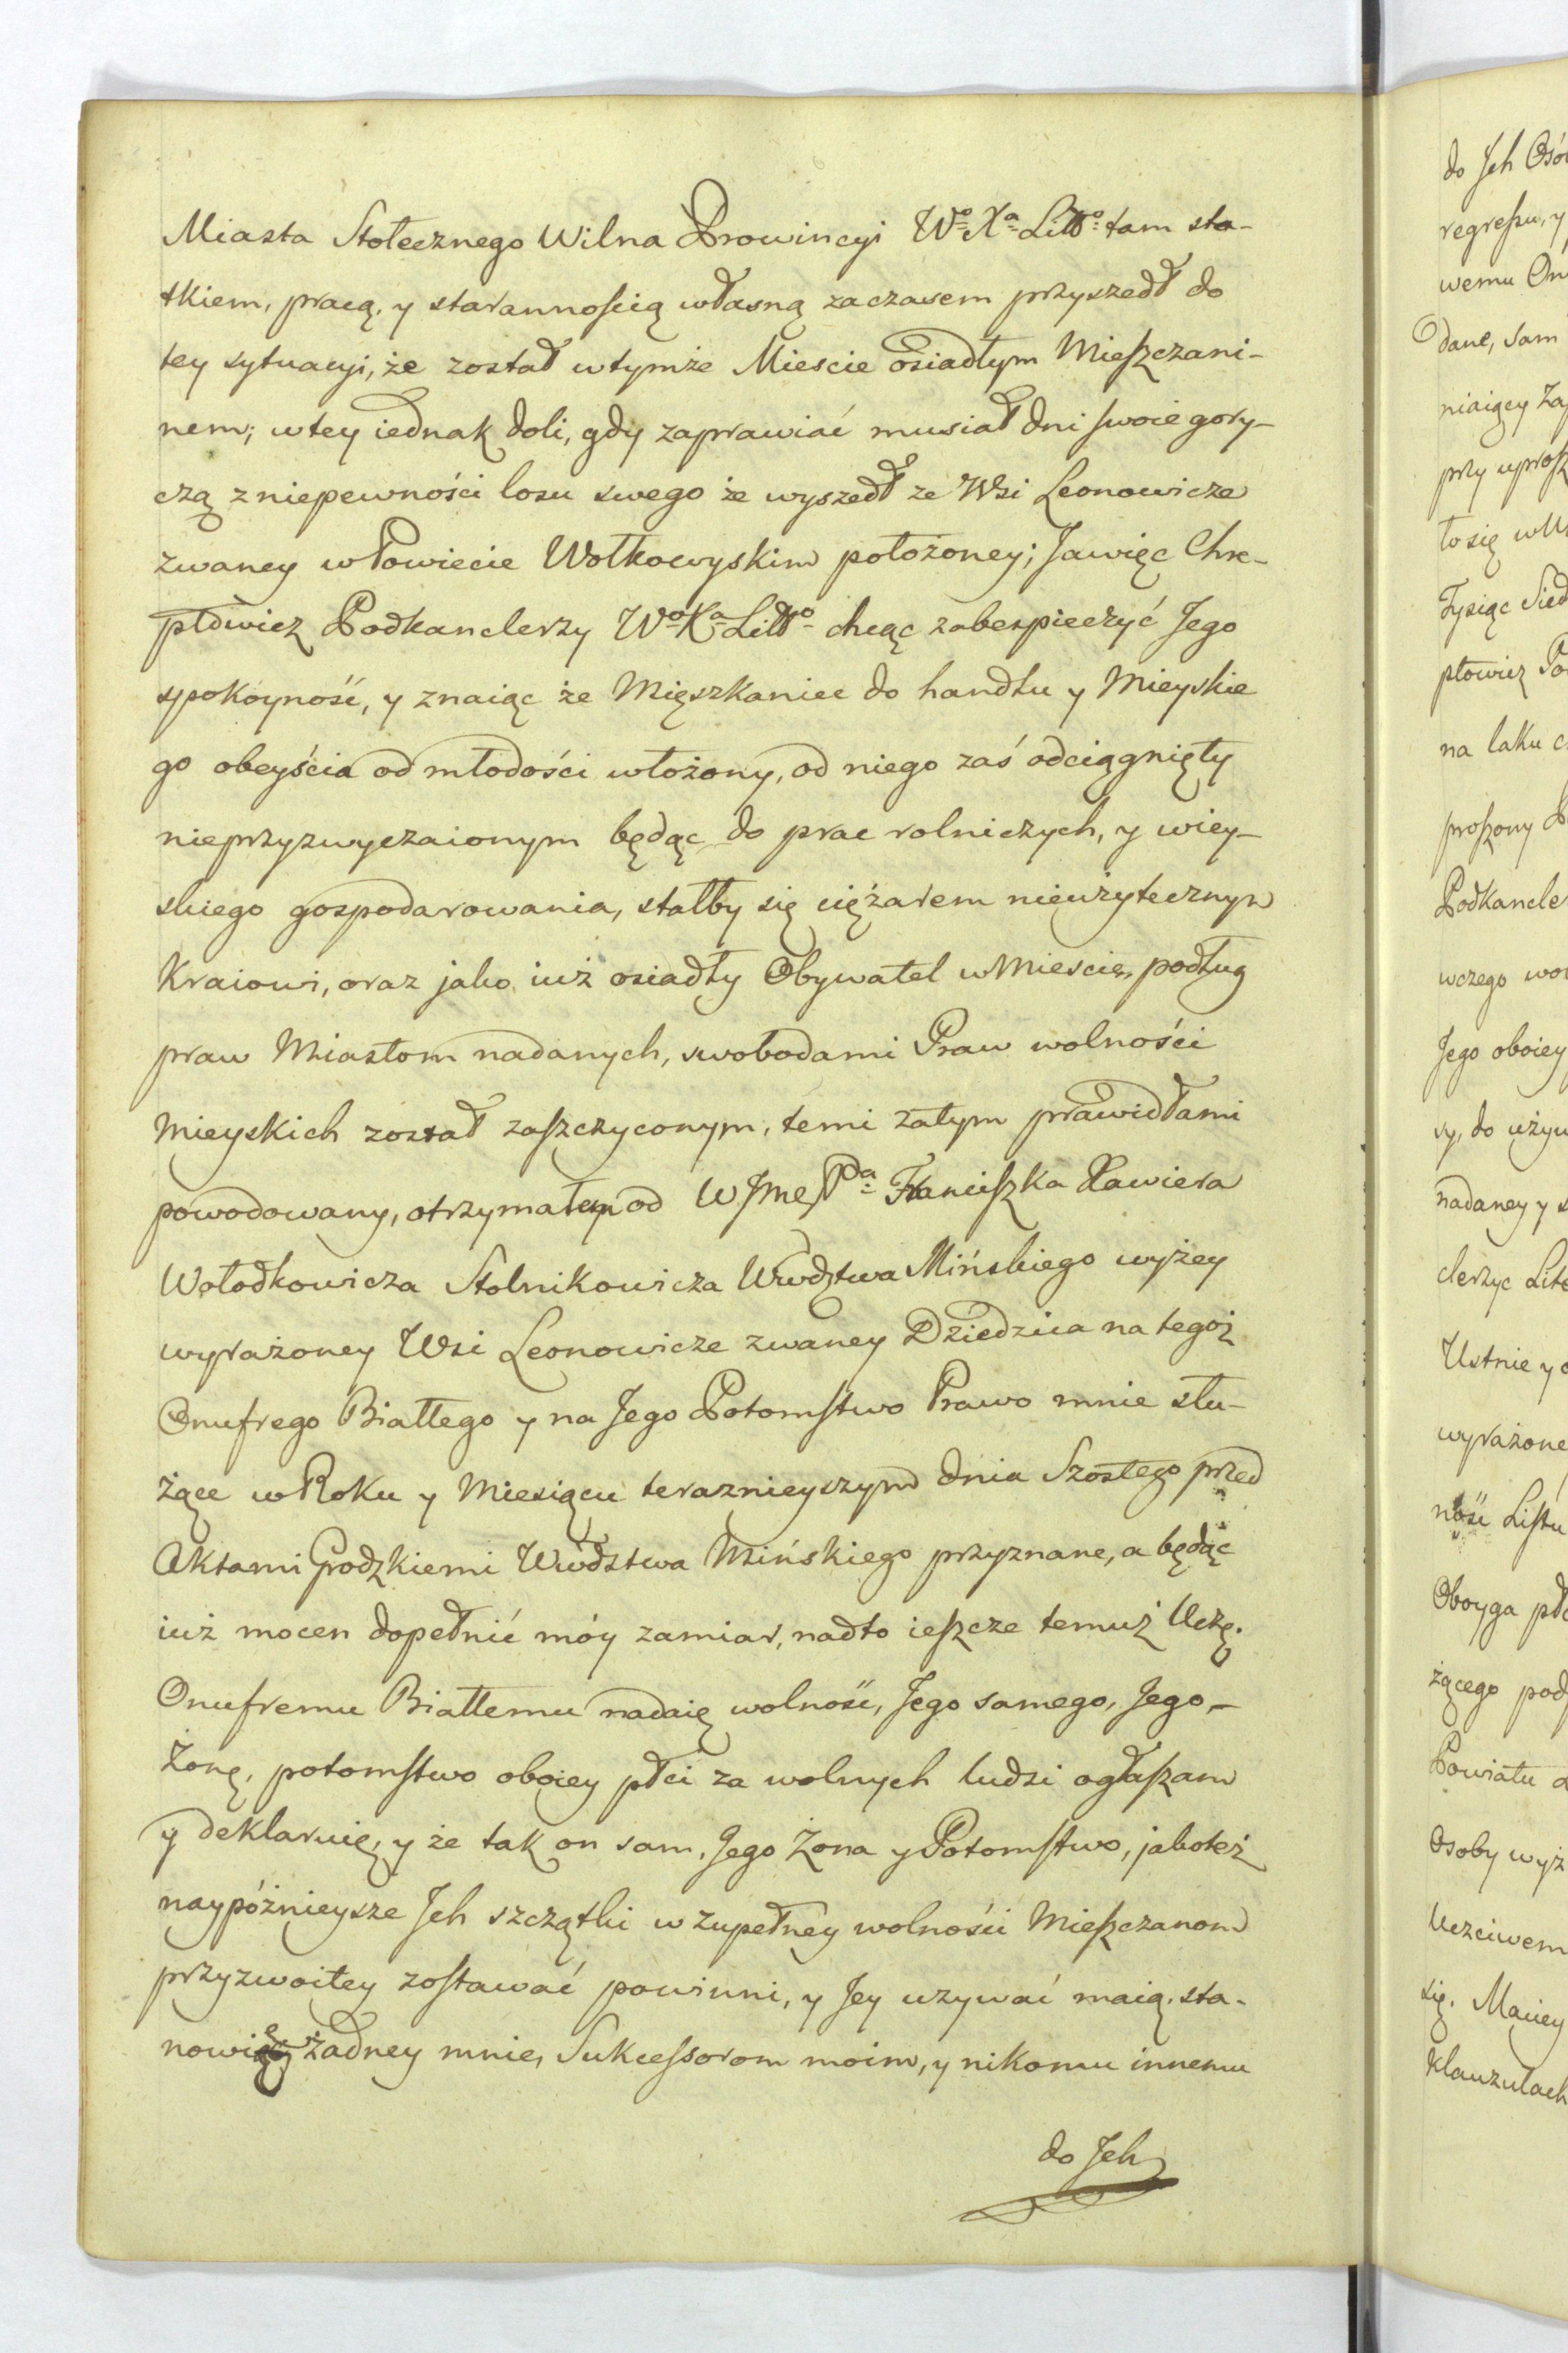 Miasta Stołecznego Wilna Prowincyi Wo Xa Litto: tam sta-
tkiem, pracą, y starannością własną zaczasem przyszedł do
tey sytuacyi, że został wtymże Miescie osiadłym Mieszczani-
nem; wtey iednak doli, gdy zaprawiać musiał dni swoie gory-
czą z niepewności losu swego że wyszedł ze Wsi Leonowicze
zwaney w Powiecie Wołkowyskim położoney; Ja więc Chre-
ptowicz Podkanclerzy Wo Xa Litto chcąc zabezpieczyć Jego
spokoyność, y znaiąc że Mięszkaniec do handlu y Mieyskie
go obeyścia od młodości włożony, od niego zaś odciągnięty
nieprzyzwyczaionym będąc do prac rolniczych, y wiey-
skiego gospodarowania, stałby się ciężarem nieużytecznym
Kraiowi, oraz jako iuż osiadły Obywatel w Miescie, podług
praw Miastom nadanych, swobodami Praw wolności
Mieyskich został zaszczyconym, temi zatym prawidłami
powodowany, otrzymałem od WJme Pa Franciszka Xawiera
Wołodkowicza Stolnikowicza Wwdztwa Mińskiego wyżey
wyrażoney Wsi Leonowicze zwaney Dziedzica na tegoż
Onufrego Białłego y na Jego Potomstwo Prawo mnie słu-
żące w Roku y Miesiącu teraznieyszym dnia Szostego przed
Aktami Grodzkiemi Wwdztwa Mińskiego przyznane, a będąc
iuż mocen dopełnić móy zamiar, nadto ieszcze temuż Uczę.
Onufremu Białłemu nadaię wolność, Jego samego, Jego-
Żonę, potomstwo oboiey płci za wolnych ludzi ogłaszam
y deklaruię, y że tak on sam, Jego Żona y Potomstwo, jakoteż
naypóźnieysze Jch szczątki w zupełney wolności Mieszczanom
przyzwoitey zostawać powinni, y Jey uzywać maią. sta-
nowię żadney mnie, Sukcessorom moim, y nikomu innemu
do Jch
do Jch
regressu, y
wemu
dane, sam
przy
to się
Tysiąc
ptowicz
na laku
proszony
wczego
Jego oboiey
do
nadaney y
Ustnie y
Listu
Oboyga
żącego
Powiatu
Osoby
się. Maiey